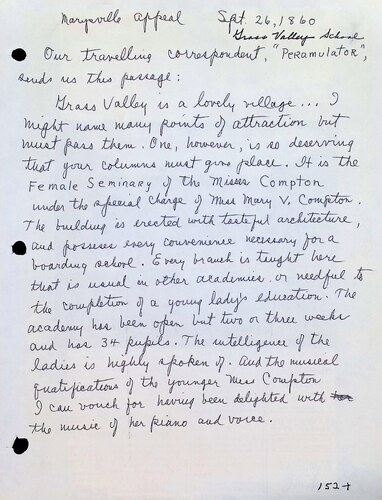 Marysville Appeal Sept. 26, 1860
Grass Valley School
Our travelling correspondent, "Peramulator",
sends us this passage:
Grass Valley is a lovely village... I
might name many points of attraction but
must pass them. One, however, is so deserving
that your columns must give place. It is the
Female Seminary of the Misses Compton
under the special charge of Miss Mary V. Compton.
The building is erected with tasteful architecture,
and possesses every convenience necessary for a
boarding school. Every branch is taught here
that is usual in other academies, or needful to
the completion of a young lady's education. The
academy has been open but two or three weeks
and has 34 pupils. The intelligence of the
ladies is highly spoken of. And the musical
qualifications of the younger Miss Compton
I can vouch for having been delighted with
the music of her piano and voice.
152+